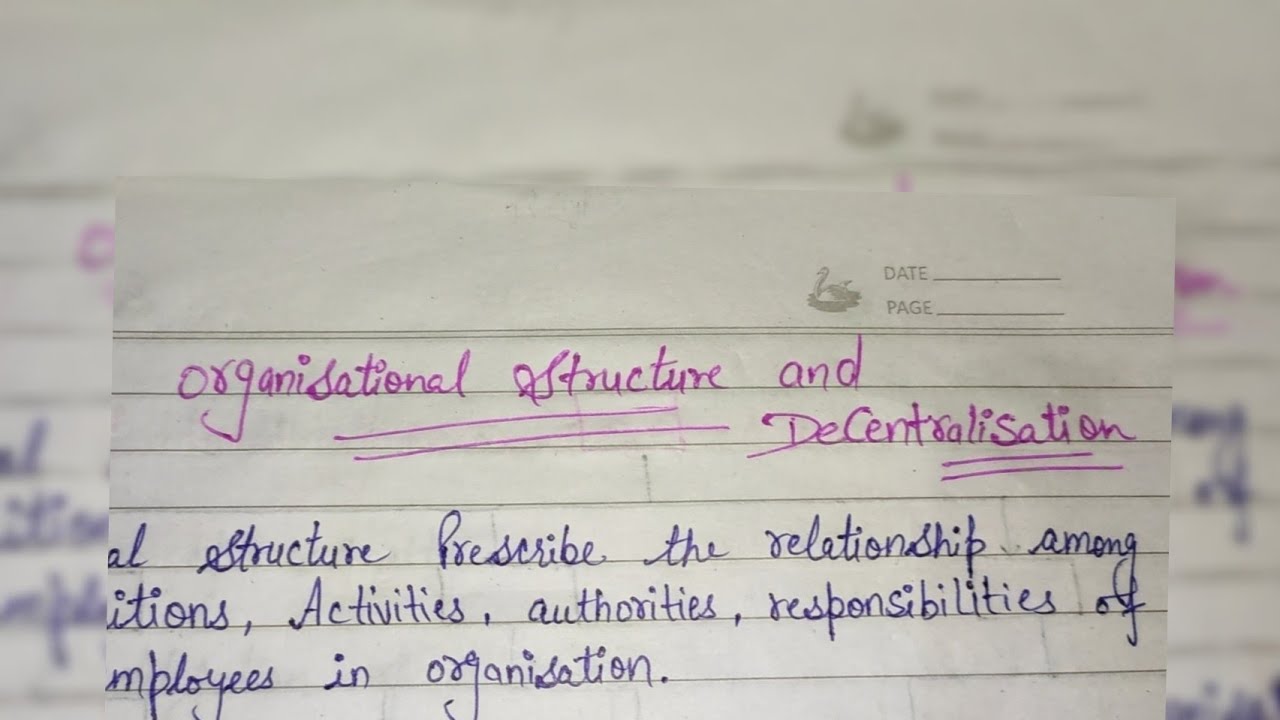 DATE
PAGE
organisational structure and
Decentralisation
al structure Prescribe the relationship among
itions, Activities, authorities, responsibilities of
mployees in organisation.